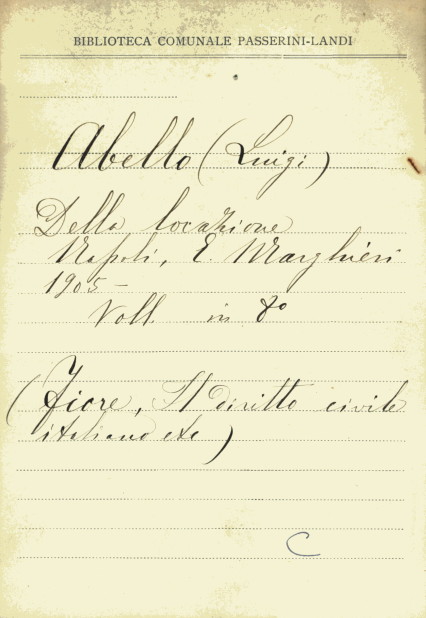 BIBLIOTECA COMUNALE PASSERINI-LANDI
Abello (Luigi)
Della locazione
Napoli, E. Marghieri
1905 –
Voll. in 8º
(Fiore, Il diritto civile
italiano etc)
C